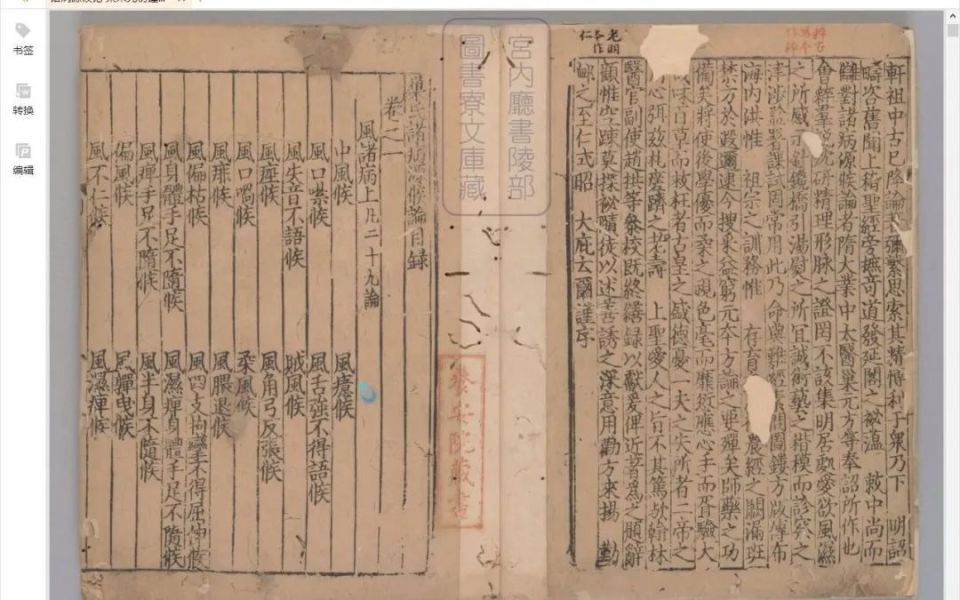 书签
转换
编辑
軒祖中古已降論著彌繁思索其精博利于衆乃下　明詔
疇咨舊聞上稽聖經旁摭奇道發延閣之祕蘊　敕中尚而
讎對諸病源候論者隋大業中太醫巢元方等奉　詔所作也
會稡羣說沉研精理形脉之證罔不該集明居處愛欲風濕
之所感示針鑱撟引湯熨之所宜誠術藝之楷模而診察之
津涉監署課試固常用此乃　命與難經素問圖鏤方版傳布
海内洪惟　祖宗之訓務惟　存育　農經之闕漏班
禁方於遐邇逮今搜采益窮元本方論之要殫矣師藥之功
備矣將使後學優而柔之視色毫而靡愆應心手而胥驗大
味百草而救枉者古皇之盛德憂一夫之失所者二帝之
心弭玆札瘥躋之老壽　上聖愛人之旨不其篤歟翰林
醫官副使趙拱等參校旣終繕録以獻爰俾近著爲之題辭
顧惟空疎莫探祕賾徒以述善誘之深意用勸方來揚　勤
卹之至仁式昭　大庇云爾謹序
宮内廳書陵部
圖書寮文庫藏
養安院藏書
巢氏諸病源候論目録
卷之一
風諸病上凡二十九論
中風候　風癔候
風口噤候　風舌強不得語候
風失音不語候　賊風候
風痙候　風角弓反張候
風口喎候　柔風候
風痱候　風腲退候
風偏枯候　風四支拘攣不得屈伸候
風身體手足不隨候　風濕痹身體手足不隨候
風痹手足不隨候　風半身不隨候
偏風候　風軃曳候
風不仁候　風濕痹候